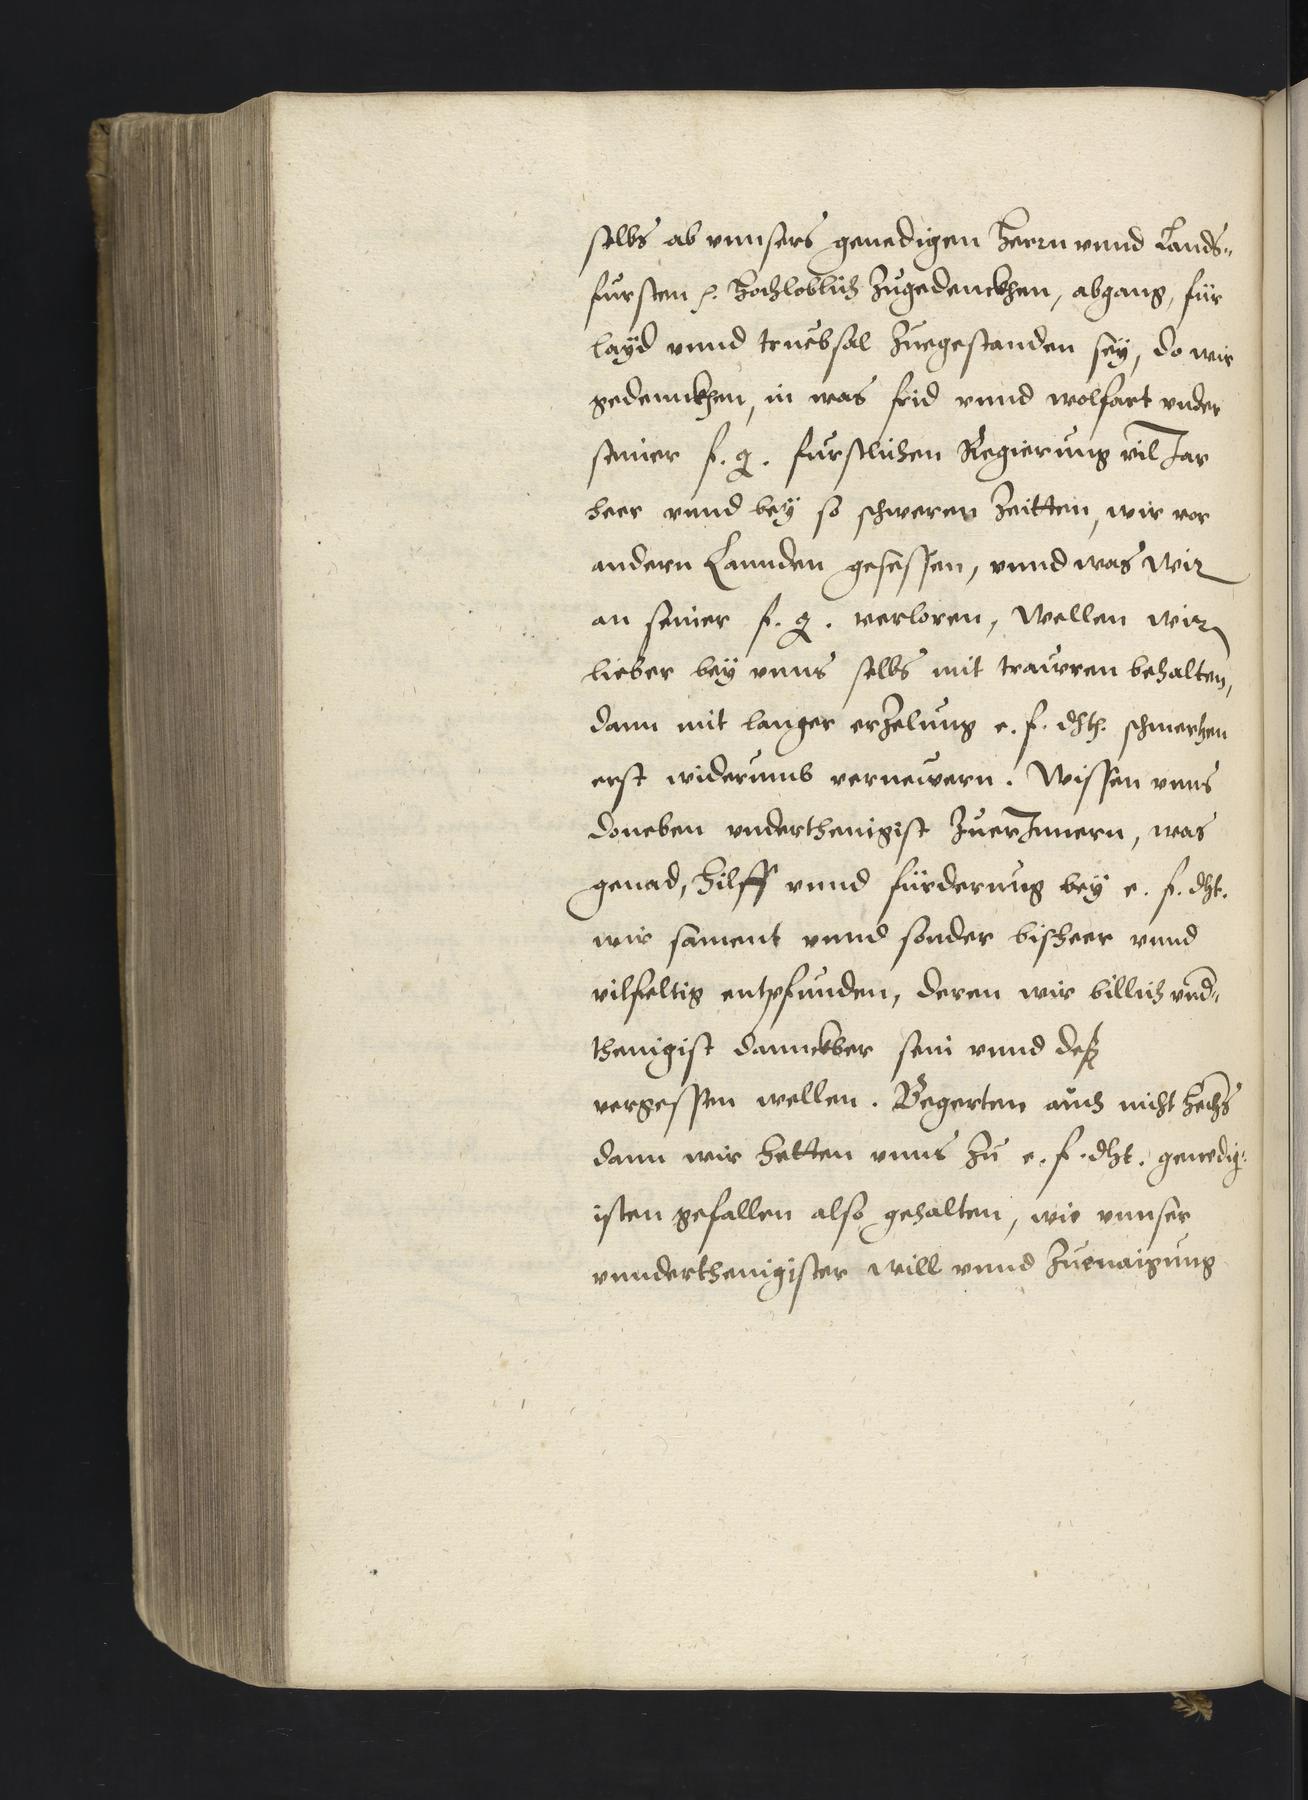 selbs ab vnnsers genedigen Herrn vnnd Lands-
fursten hochloblich Zugedenckhen, abgang, für
layd vnnd truebsal Zuegestanden seÿ, do wir
gedennckhen, in was frid vnnd wolfart vnder
seiner f. g. furstlichen Regierung vil Jar
heer vnnd beÿ so schweren Zeitten, wir vor
andern Lannden gesessen, vnnd was wir
an seiner f. g. verloren, wellen wir
lieber beÿ vnns selbs mit trawren behalten,
dann mit langer erZelung e. f. dht. schmertzen
erst widerumb vernewern. Wissen vnns
doneben vnderthenigist ZuerInnern, was
genad, hilff vnnd fürderung beÿ e. f. dht.
wir sament vnnd sonder bisheer vnnd
vilfeltig entpfunden, deren wir billich vnd-
thenigist dannckber sein vnnd deß
vergessen wellen. Begerten auch nicht hochs
dann wir hetten vnns Zu e. f. dht. genedig-
isten gefallen also gehalten, wie vnnser
vnnderthenigister will vnnd Zuenaigung